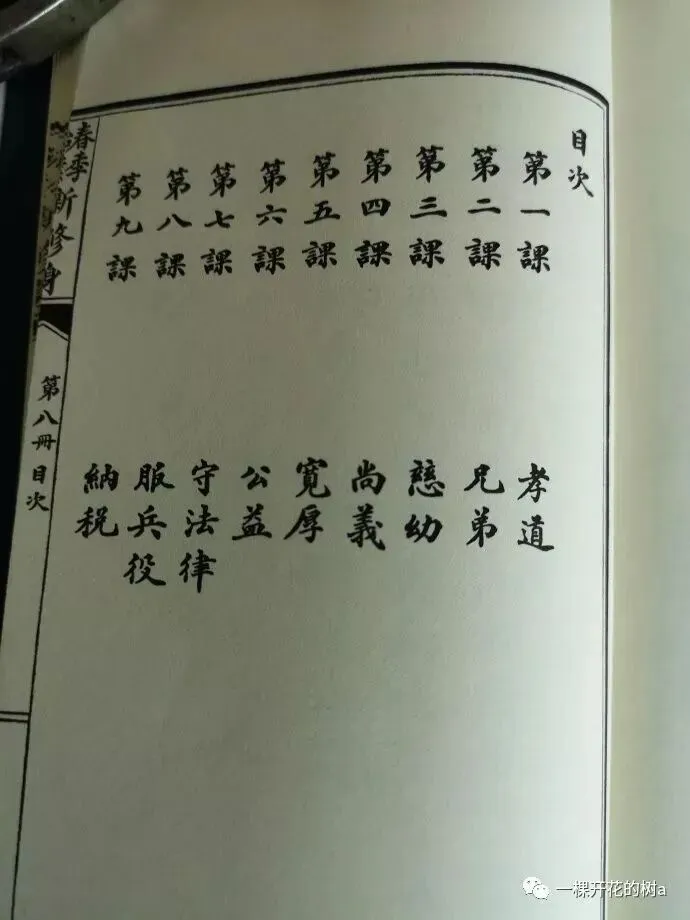 目次
第一課 孝道
第二課 兄弟
第三課 慈幼
第四課 尚義
第五課 寬厚
第六課 公益
第七課 守法律
第八課 服兵役
第九課 納稅
春季
新修身
第八冊 目次
一棵开花的树a